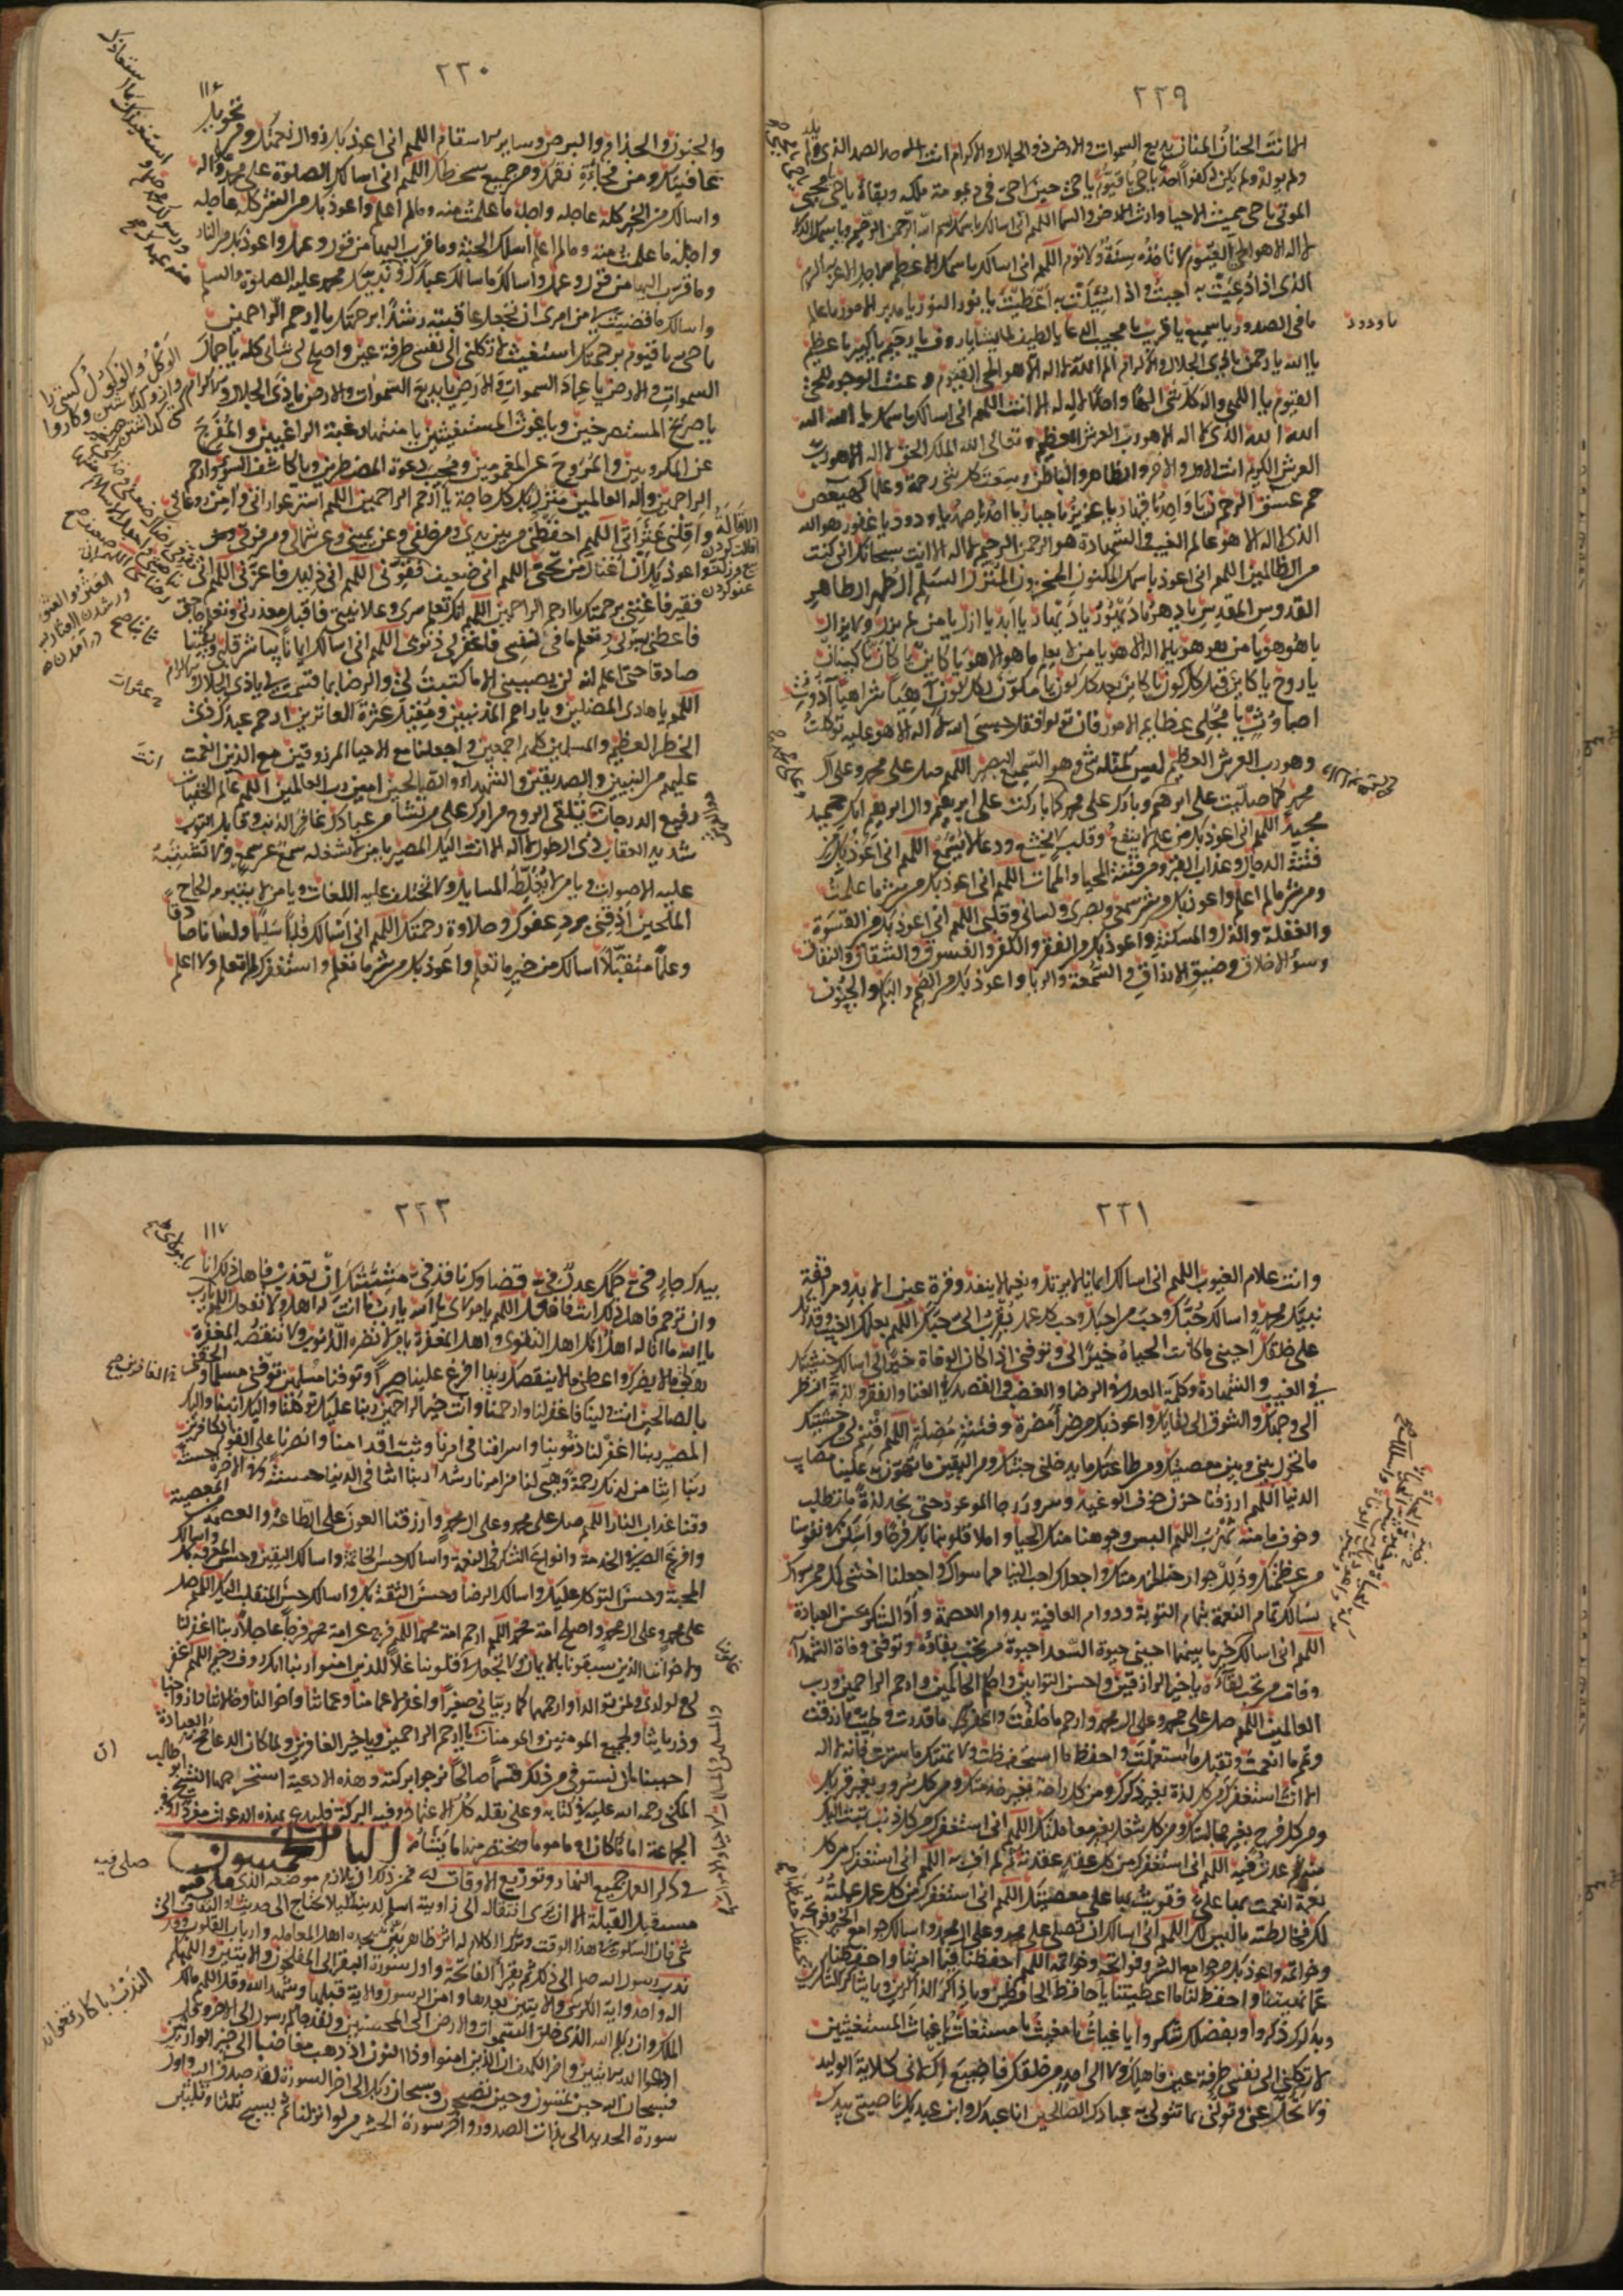 ٢٢٩
الا انت الحنان المنان بديع السموات والارض ذو الجلال والاكرام انت الاحد الصمد الذى لم يلد
ولم يولد ولم يكن له كفوا احد يا حى يا قيوم يا حى حين لا حى فى ديمومة ملكه وبقائه يا حى محيى
الموتى يا حى مميت الاحيا وارث الارض والسما اللهم انى اسالك باسمك بسم الله الرحمن الرحيم وباسمك الذى
لا اله الا هو الحى القيوم لا تاخذه سنة ولا نوم اللهم انى اسالك باسمك الاعظم الاجل الاعز الاكرم
الذى اذا دعيت به اجبت واذا سئلت به اعطيت يا نور النور يا مدبر الامور يا عالم
ما فى الصدور يا سميع يا قريب يا مجيب الدعا يا لطيفا لما يشا يا روف يا رحيم يا كبير يا عظيم
يا الله يا رحمن يا ذى الجلال والاكرام الم الله لا اله الا هو الحى القيوم وعنت الوجوه للحى
القيوم يا الهى واله كل شى الها واحدا لا اله الا انت اللهم انى اسالك باسمك يا الله الله
الله الله الذى لا اله الا هو رب العرش العظيم فتعالى الله الملك الحق لا اله الا هو رب
العرش الكريم انت الاول والاخر والظاهر والباطن وسعت كل شى رحمة وعلما كهيعص
حم عسق الرحمن يا واحد يا قهار يا عزيز يا جبار يا احد يا صمد يا ودود يا غفور هو الله
الذى لا اله الا هو عالم الغيب والشهادة هو الرحمن الرحيم لا اله الا انت سبحانك انى كنت
من الظالمين اللهم انى اعوذ باسمك المكنون المخزون المنزل السلم الطهر الطاهر
القدوس المقدس يا دهر يا ديهور يا ديهار يا ابد يا ازل يا من لم يزل ولا يزال
يا هو هو يا من هو هو يا من لا اله الا هو يا من لا يعلم ما هو الا هو يا كان يا كينان
يا روح يا كاين قبل كل كون يا كاين بعد كل كون يا مكون لكل كون اهيا شراهيا
يا مجلى عظايم الامور فان تولوا فقل حسبى الله لا اله الا هو عليه توكلت
وهو رب العرش العظيم ليس كمثله شى وهو السميع البصير اللهم صل على محمد وعلى آل
محمد كما صليت على ابرهيم وبارك على محمد كما باركت على ابرهيم وال ابرهيم انك حميد
مجيد اللهم انى اعوذ بك من علم لا ينفع وقلب لا يخشع ودعا لا يسمع اللهم انى اعوذ بك من
فتنة الدجال وعذاب القبر ومن فتنة المحيا والممات اللهم انى اعوذ بك من شر ما علمت
ومن شر ما لم اعلم واعوذ بك من شر سمعى وبصرى ولسانى وقلبى اللهم انى اعوذ بك من القسوة
والغفلة والذل والمسكنة واعوذ بك من الفقر والكفر والفسوق والشقاق والنفاق
وسوء الاخلاق وضيق الارزاق والسمعة والريا واعوذ بك من الصم والبكم والجنون
٢٣٠
١١٤
والجنون والجذام والبرص وساير الاسقام اللهم انى اعوذ بك من زوال نعمتك ومن تحويل
عافيتك ومن فجاءة نقمتك ومن جميع سخطك اللهم انى اسالك الصلوة على محمد واله
واسالك من الخير كله عاجله واجله ما علمت منه وما لم اعلم واعوذ بك من الشر كله عاجله
واجله ما علمت منه وما لم اعلم اسالك الجنة وما قرب اليها من قول وعمل واعوذ بك من النار
وما قرب اليها من قول وعمل واسالك ما سالك عبدك ونبيك محمد عليه الصلوة والسلم
واسالك ما قضيت لى من امرى ان تجعل عاقبته رشدا برحمتك يا ارحم الراحمين
يا حى يا قيوم برحمتك استغيث لا تكلنى الى نفسى طرفة عين واصلح لى شانى كله يا جمال
السموات والارض يا عماد السموات والارض يا بديع السموات والارض يا ذى الجلال والاكرام
يا صريخ المستصرخين ويا غوث المستغيثين يا منتهى رغبة الراغبين والمفرج
عن المكروبين والمروح عن المغمومين ومجيب دعوة المضطرين ويا كاشف السو وارحم
الراحمين واله العالمين منزل بك كل حاجة يا ارحم الراحمين اللهم استر عوراتى وامن روعاتى
واقلنى عثراتى اللهم احفظنى من بين يدى ومن خلفى وعن يمينى وعن شمالى ومن فوقى
واعوذ بك ان اغتال من تحتى اللهم انى ضعيف فقونى اللهم انى ذليل فاعزنى اللهم انى
فقير فاغننى برحمتك يا ارحم الراحمين اللهم انك تعلم سرى وعلانيتى فاقبل معذرتى وتعلم حاجتى
فاعطنى سؤلى وتعلم ما فى نفسى فاغفر لى ذنوبى اللهم انى اسالك ايمانا يباشر قلبى ويقينا
صادقا حتى اعلم انه لن يصيبنى الا ما كتبت لى والرضا بما قسمت لى يا ذى الجلال
اللهم يا هادى المضلين ويا راحم المذنبين ومقيل عثرة العاثرين ارحم عبدك ذى
الخطر العظيم والمسلمين كلهم اجمعين واجعلنا مع الاحيا المرزوقين مع الذين انعمت
عليهم من النبيين والصديقين والشهداء والصالحين امين رب العالمين اللهم عالم الخفيات
رفيع الدرجات تلقى الروح من امرك على من تشا من عبادك غافر الذنب وقابل التوب
شديد العقاب ذى الطول لا اله الا انت اليك المصير يا من لا يشغله سمع عن سمع ولا تشتبه
عليه الاصوات يا من لا تغلطه المسايل ولا تختلف عليه اللغات ويا من لا يتبرم بالحاح
الملحين اذقنى برد عفوك وحلاوة رحمتك اللهم انى اسالك قلبا سليما ولسانا صادقا
وعملا متقبلا اسالك من خير ما تعلم واعوذ بك من شر ما تعلم واستغفرك لما تعلم ولا اعلم
٢٢١
وانت علام الغيوب اللهم انى اسالك ايمانا لا يرتد ونعيما لا ينفد وقرة عين الابد ومرافقة
نبيك محمد واسالك حبك وحب من احبك وحب كل عمل يقرب الى حبك اللهم بعلمك الغيب وقدرتك
على خلقك احينى ما كانت الحياة خيرا لى وتوفنى اذا كان الوفاة خيرا لى اسالك خشيتك
فى الغيب والشهادة وكلمة العدل فى الرضا والغضب والقصد فى الغنا والفقر ولذة النظر
الى وجهك والشوق الى لقايك واعوذ بك من ضراء مضرة وفتنة مضلة اللهم اقسم لى من خشيتك
ما تحول بينى وبين معصيتك ومن طاعتك ما يدخلنى جنتك ومن اليقين ما تهون به علينا مصايب
الدنيا اللهم ارزقنا حزن خوف الوعيد وسرور رجا الموعود حتى نجد لذة ما نطلب
وخوف ما منه نهرب اللهم البس وجوهنا منك الحيا واملا قلوبنا بك فرحا واسكن نفوسنا
من عظمتك وذلل جوارحنا لخدمتك واجعلك احب الينا مما سواك واجعلنا اخشى لك ممن سواك
نسالك تمام النعمة بتمام التوبة ودوام العافية بدوام العصمة واداء الشكر بحسن العبادة
اللهم انى اسالك خير ما بينهما احينى حيوة السعدا حيوة من تحب بقاءه وتوفنى وفاة الشهدا
وفات من تحب لقاءه يا خير الرازقين واحسن التوابين واحكم الحاكمين وارحم الراحمين ورب
العالمين اللهم صل على محمد وعلى ال محمد وارحم ما خلقت واغفر ما قدرت وطيب ما رزقت
وتمم ما انعمت وتقبل ما استعملت واحفظ ما استحفظت ولا تهتك ما سترت فانه لا اله
الا انت استغفرك من كل لذة بغير ذكرك ومن كل راحة بغير خدمتك ومن كل سرور بغير قربك
ومن كل فرح بغير مجالستك ومن كل شغل بغير معاملتك اللهم انى استغفرك من كل ذنب تبت اليك
منه ثم عدت فيه اللهم انى استغفرك من كل عقد عقدته ثم لم اف به اللهم انى استغفرك من كل
نعمة انعمت بها على فقويت بها على معصيتك اللهم انى استغفرك من كل عمل عملته
لك فخالطه ما ليس لك اللهم انى اسالك ان تصلى على محمد وعلى ال محمد واسالك جوامع الخير وفواتحه
وخواتمه واعوذ بك من جوامع الشر وفواتحه وخواتمه اللهم احفظنا فيما امرتنا واحفظنا
عما نهيتنا واحفظ لنا ما اعطيتنا يا حافظ الحافظين ويا ذاكر الذاكرين ويا شاكر الشاكرين
وبذكرك ذكروا وبفضلك شكروا يا غياث يا مغيث يا مستغاث يا غياث المستغيثين
لا تكلنى الى نفسى طرفة عين فاهلك ولا الى احد من خلقك فاضيع اكلانى كلاية الوليد
ولا تخل عنى وتولنى بما تتولى به عبادك الصالحين انا عبدك وابن عبديك ناصيتى بيدك
٢٢٣
١١٧
بيدك جار فى حكمك عدل فى قضاؤك نافذ فى مشيتك ان تعذب فاهل ذلك انا
وان ترحم فاهل ذلك انت فافعل اللهم يا مولاى يا الله يا رب ما انت له اهل ولا تفعل اللهم يا رب
يا الله ما انا له اهل انك اهل التقوى واهل المغفرة يا من لا تضره الذنوب ولا تنقصه المغفرة
هب لى ما لا يضرك واعطنى ما لا ينقصك ربنا افرغ علينا صبرا وتوفنا مسلمين توفنى مسلما والحقنى
بالصالحين انت ولينا فاغفر لنا وارحمنا وانت خير الراحمين ربنا عليك توكلنا واليك انبنا واليك
المصير ربنا اغفر لنا ذنوبنا واسرافنا فى امرنا وثبت اقدامنا وانصرنا على القوم الكافرين
ربنا اتنا من لدنك رحمة وهيى لنا من امرنا رشدا ربنا اتنا فى الدنيا حسنة وفى الاخرة حسنة
وقنا عذاب النار اللهم صل على محمد وعلى ال محمد وارزقنا العون على الطاعة والعصمة من المعصية
وافرغ الصبر فى الخدمة وانواع الشكر فى النعمة واسالك حسن الخاتمة واسالك اليقين وحسن المعرفة بك
المحبة وحسن التوكل عليك واسالك الرضا وحسن الثقة بك واسالك حسن المنقلب اليك اللهم صل
على محمد وعلى ال محمد واصلح امة محمد اللهم ارحم امة محمد اللهم فرج عن امة محمد فرجا عاجلا ربنا اغفر لنا
ولاخواننا الذين سبقونا بالايمان ولا تجعل فى قلوبنا غلا للذين امنوا ربنا انك روف رحيم اللهم اغفر
لى ولوالدى ولمن توالدا وارحمهما كما ربيانى صغيرا واغفر لاعمامنا وعماتنا واخوالنا وخالاتنا وازواجنا
وذرياتنا ولجميع المومنين والمومنات يا ارحم الراحمين ويا خير الغافرين ولما كان الدعا مخ العبادة
احببنا ان نستوفى من ذلك قسما صالحا نرجوا بركته وهذه الادعية استخرجها الشيخ ابو طالب
المكى رحمه الله عليه فى كتابه وعلى نقله كل الاعتماد وفيه البركة فليدع بهذه الدعوات منفردا او فى
الجماعة اماما كان او ماموما ويختصر منها ما يشا الباب الخمسون
فى ذكر العمل فى جميع النهار وتوزيع الاوقات له فمن ذلك ان يلازم موضعه الذى صلى فيه
مستقبل القبلة الا ان يرى انتقاله الى زاويته اسلم لدينه لئلا يحتاج الى حديث او التفات الى
شى فان السكوت فى هذا الوقت وترك الكلام له اثر ظاهر بين يجده اهل المعاملة وارباب القلوب وقد
ندب رسول الله صلى الى ذلك ثم يقرأ الفاتحة واول سورة البقرة الى المفلحون والايتين والهكم
اله واحد واية الكرسى والايتين بعدها وامن الرسول والاية قبلها وشهد الله وقل اللهم مالك
الملك وان ربكم الله الذى خلق السموات والارض الى المحسنين ولقد جاكم رسول الى الاخر وقل
ادعوا الله الايتين واخر الكهف ان الذين امنوا وذا النون اذ ذهب مغاضبا الى خير الوارثين
فسبحان الله حين تمسون وحين تصبحون وسبحان ربك الى اخر السورة لقد صدق الله واول
سورة الحديد الى بذات الصدور واخر سورة الحشر من لو انزلنا ثم يسبح ثلثا وثلثين